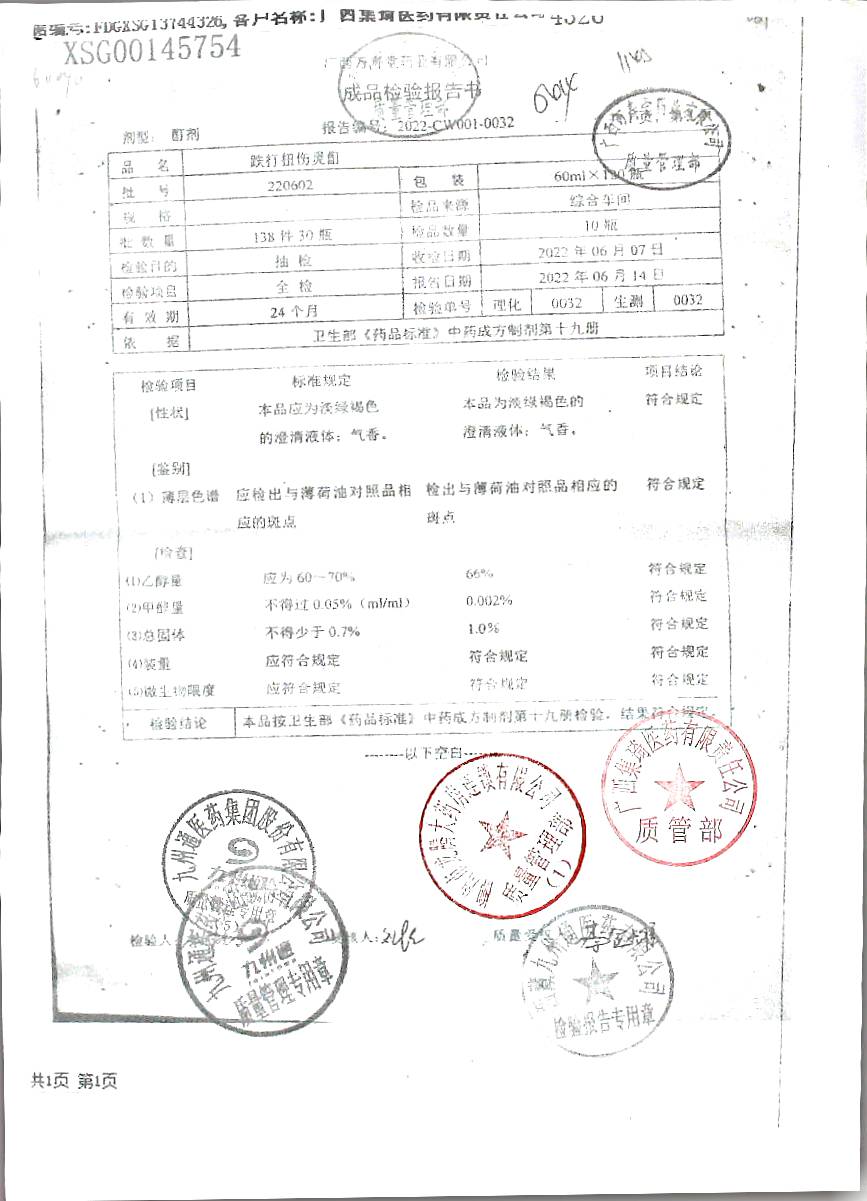 质编号:FDGXSG13744326, 客户名称:广西集琦医药有限责任公司 4326
XSG00145754
成品检验报告书
质量管理部
剂型: 酊剂 报告编号: 2022-CW001-0032
质量管理部
品 名 跌打扭伤灵酊
批 号 220602 包 装 60ml×
规 格 检品来源 综合车间
批数量 138件30瓶 检品数量 10瓶
检验目的 抽检 收检日期 2022年06月07日
检验项目 全检 报告日期 2022年06月14日
有效期 24个月 检验单号 理化 0032 生测 0032
依 据 卫生部《药品标准》中药成方制剂第十九册
检验项目 标准规定 检验结果 项目结论
[性状] 本品应为淡绿褐色 本品为淡绿褐色的 符合规定
的澄清液体;气香。 澄清液体;气香。
[鉴别]
(1)薄层色谱 应检出与薄荷油对照品相 检出与薄荷油对照品相应的 符合规定
应的斑点 斑点
[检查]
(1)乙醇量 应为60~70% 66% 符合规定
(2)甲醇量 不得过0.05%(ml/ml) 0.002% 符合规定
(3)总固体 不得少于0.7% 1.0% 符合规定
(4)装量 应符合规定 符合规定 符合规定
(5)微生物限度 应符合规定 符合规定 符合规定
检验结论 本品按卫生部《药品标准》中药成方制剂第十九册检验,结果符合规定。
--------以下空白--------
广西集琦医药有限责任公司
质管部
大药房连锁有限公司
质量管理部
(1)
九州通医药集团股份有限公司
检验人 核人: 质量受权
九州通
质量管理专用章
九州通医药 有限公司
检验报告专用章
共1页 第1页